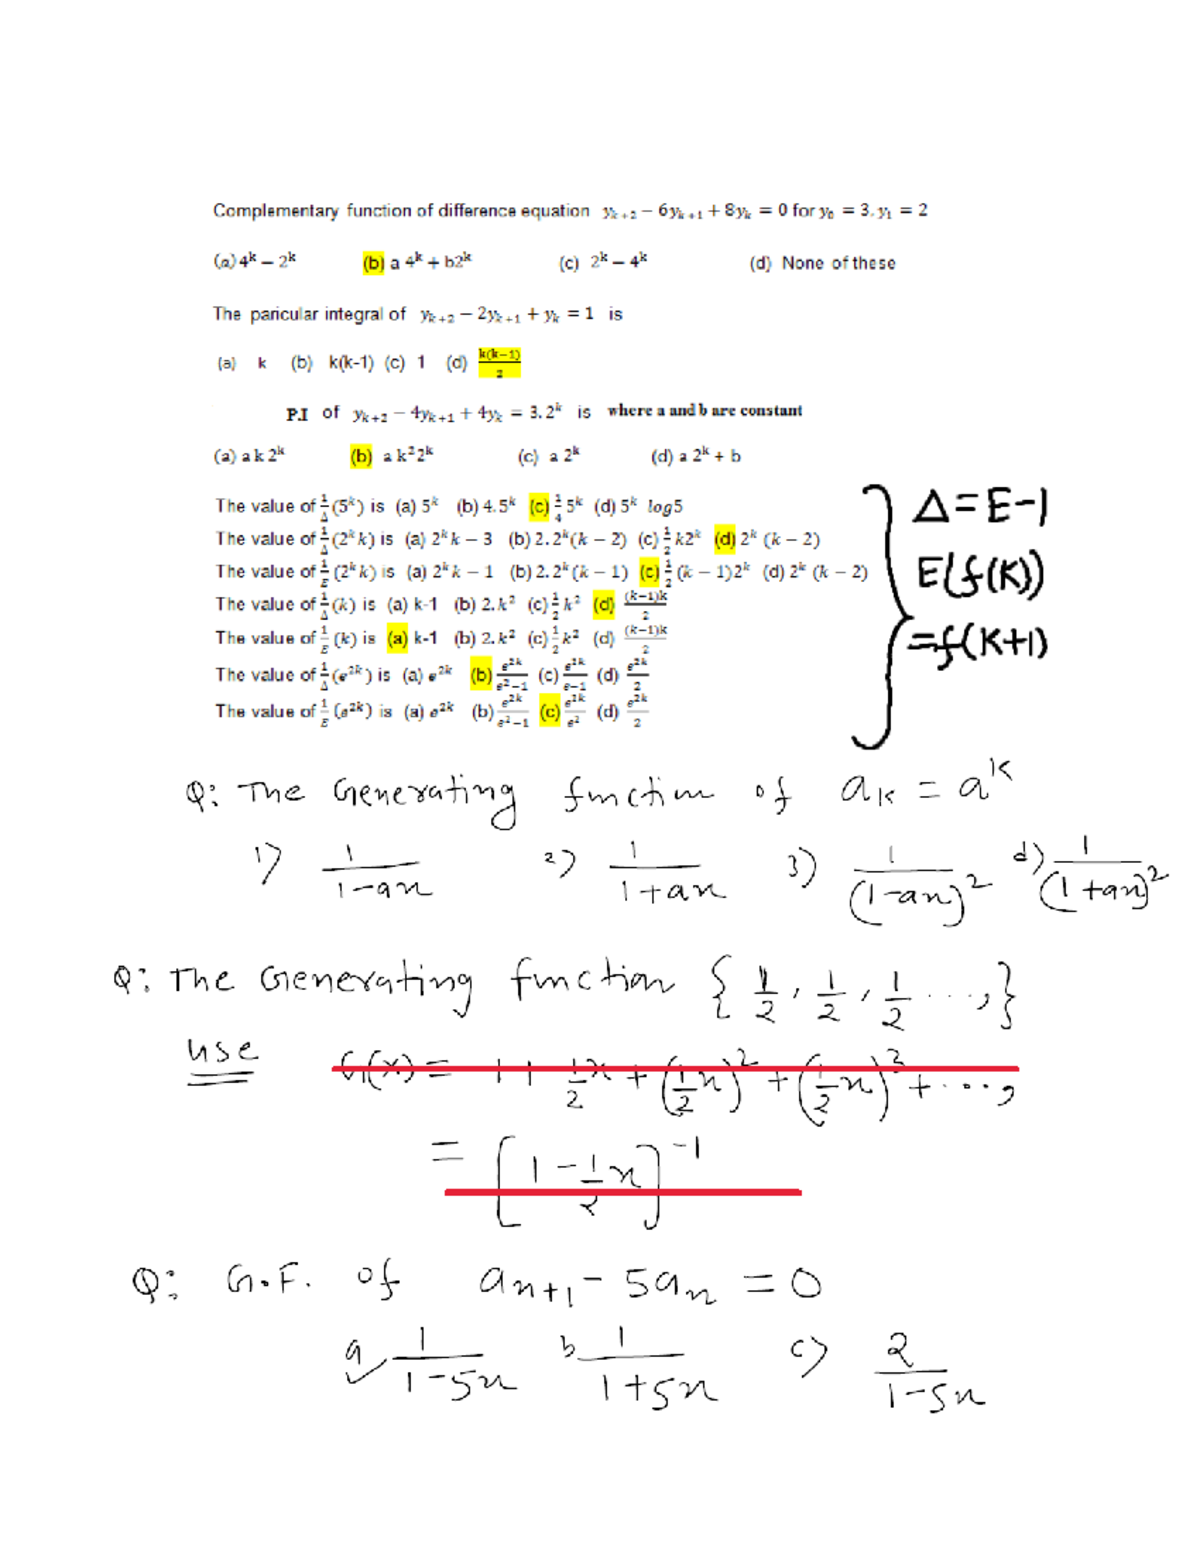 Complementary function of difference equation yₖ₊₂ − 6yₖ₊₁ + 8yₖ = 0 for y₀ = 3, y₁ = 2
(a) 4ᵏ − 2ᵏ (b) a 4ᵏ + b2ᵏ (c) 2ᵏ − 4ᵏ (d) None of these
The paricular integral of yₖ₊₂ − 2yₖ₊₁ + yₖ = 1 is
(a) k (b) k(k-1) (c) 1 (d) k(k−1)/2
P.I of yₖ₊₂ − 4yₖ₊₁ + 4yₖ = 3.2ᵏ is where a and b are constant
(a) a k 2ᵏ (b) a k²2ᵏ (c) a 2ᵏ (d) a 2ᵏ + b
The value of 1/Δ (5ᵏ) is (a) 5ᵏ (b) 4.5ᵏ (c) 1/4 5ᵏ (d) 5ᵏ log5
The value of 1/Δ (2ᵏk) is (a) 2ᵏk − 3 (b) 2.2ᵏ(k − 2) (c) 1/2 k2ᵏ (d) 2ᵏ (k − 2)
The value of 1/E (2ᵏk) is (a) 2ᵏk − 1 (b) 2.2ᵏ(k − 1) (c) 1/2 (k − 1)2ᵏ (d) 2ᵏ (k − 2)
The value of 1/Δ (k) is (a) k-1 (b) 2.k² (c) 1/2 k² (d) (k−1)k/2
The value of 1/E (k) is (a) k-1 (b) 2.k² (c) 1/2 k² (d) (k−1)k/2
The value of 1/Δ (e²ᵏ) is (a) e²ᵏ (b) e²ᵏ/e²−1 (c) e²ᵏ/e−1 (d) e²ᵏ/2
The value of 1/E (e²ᵏ) is (a) e²ᵏ (b) e²ᵏ/e²−1 (c) e²ᵏ/e² (d) e²ᵏ/2
Δ=E-1
E(f(K))
=f(K+1)
Q: The Generating function of aₖ = aᵏ
1) 1/1-ax 2) 1/1+ax 3) 1/(1-ax)² d) 1/(1+ax)²
Q: The Generating function { 1/2, 1/2, 1/2 ..., }
use G(x) = 1+ 1/2 x + (1/2 x)² + (1/2 x)³ + ...,
= [1 - 1/2 x]⁻¹
Q: G.F. of aₙ₊₁ - 5aₙ = 0
a 1/1-5x b 1/1+5x c) 2/1-5x